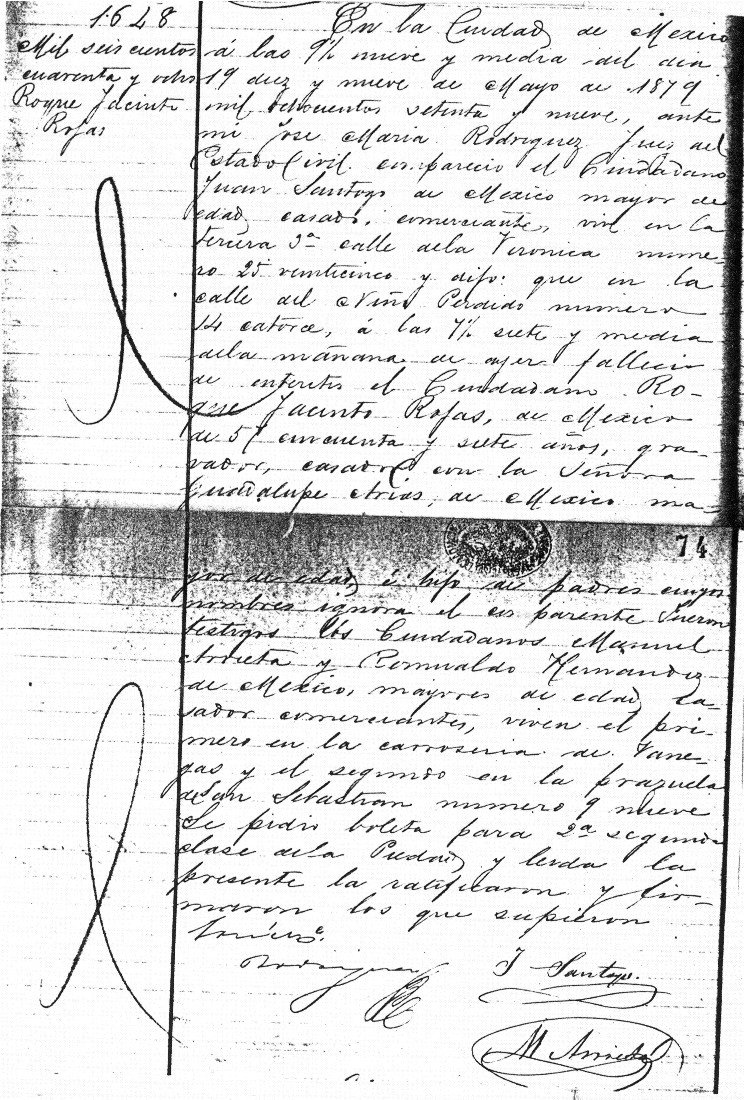 1628
Mil seis cientos
cuarenta y ocho
Roque Jacinto
Rojas
En la Ciudad de Mexico
á las 9½ nueve y media del dia
19 diez y nueve de Mayo de 1879
mil ochocientos setenta y nueve, ante
mi Jose Maria Rodriguez Juez del
Estado Civil comparecio el Ciudadano
Juan Santoyo de Mexico mayor de
edad, casado, comerciante, vive en la
tercera 3ª calle dela Veronica nume-
ro 25 veinticinco y dijo: que en la
calle del Niño Perdido numero
14 catorce, á las 7½ siete y media
dela mañana de ayer fallecio
de enteritis el Ciudadano Ro-
que Jacinto Rojas, de Mexico
de 57 cincuenta y siete años, gra-
vador, casado con la Señora
Guadalupe Arias, de Mexico ma-
74
yor de edad, é hijo de padres cuyos
nombres ignora el comparente Fueron
testigos los Ciudadanos Manuel
Arrieta y Romualdo Hernandez
de Mexico, mayores de edad, ca-
sados comerciantes, viven el pri-
mero en la carroseria de Vane-
gas y el segundo en la plazuela
de San Sebastian numero 9 nueve
Se pidio boleta para 2ª segunda
clase dela Piedad, y leida la
presente la ratificaron y fir-
maron los que supieron
Rodriguez
J Santoyo.
M Arrieta